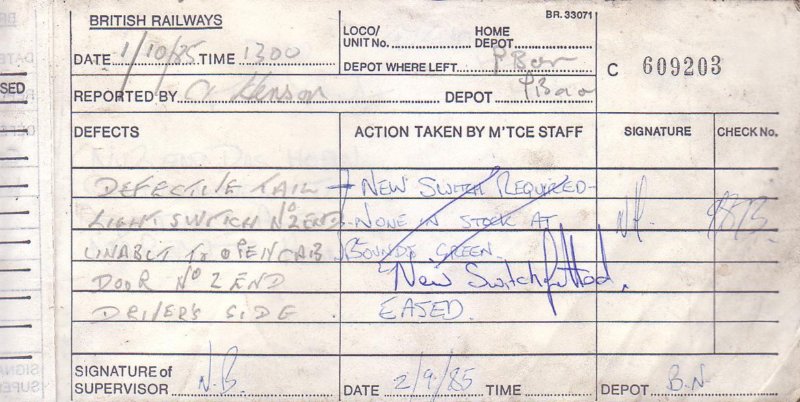 BRITISH RAILWAYS
BR. 33071
DATE 1/10/85 TIME 1300
LOCO/
UNIT No.
HOME
DEPOT
DEPOT WHERE LEFT P Bar
C 609203
SED
REPORTED BY DEPOT P Bar
DEFECTS
ACTION TAKEN BY M'TCE STAFF
SIGNATURE
CHECK No.
DEFECTIVE TAIL - NEW SWITCH REQUIRED -
LIGHT SWITCH No 2 END. NONE IN STOCK AT
UNABLE TO OPEN CAB BOUNDS GREEN.
DOOR No 2 END New Switch fitted.
DRIVER'S SIDE. EASED.
SIGNATURE of
SUPERVISOR N.B. DATE 2/9/85 TIME DEPOT B.N.